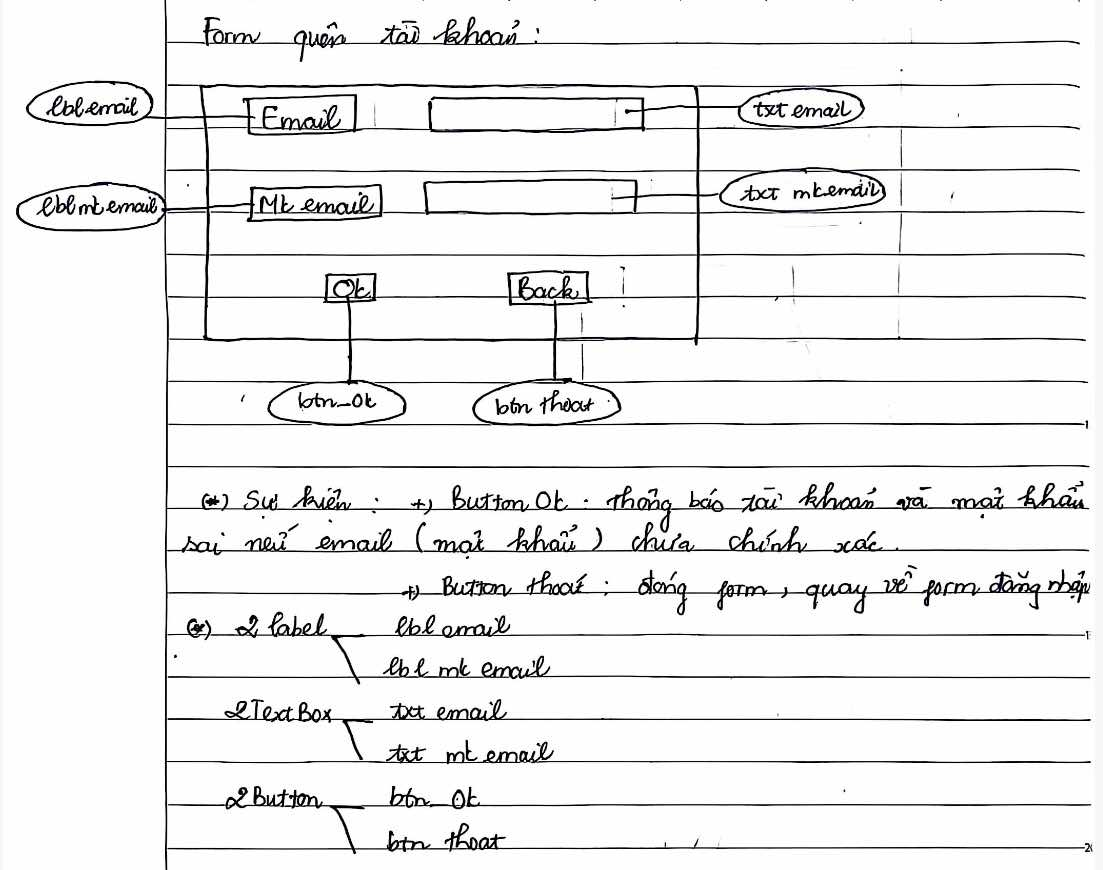 Form quên tài khoản :
lbl email
Email
txt email
lbl mk email
Mk email
txt mk email
Ok
Back
btn_ok
btn thoat
(*) Sự kiện : +) Button Ok : thông báo tài khoản và mật khẩu
sai nếu email (mật khẩu) chưa chính xác.
+) Button thoát : đóng form, quay về form đăng nhập
(*) 2 label lbl email
lbl mk email
2 TextBox txt email
txt mk email
2 Button btn_Ok
btn thoat